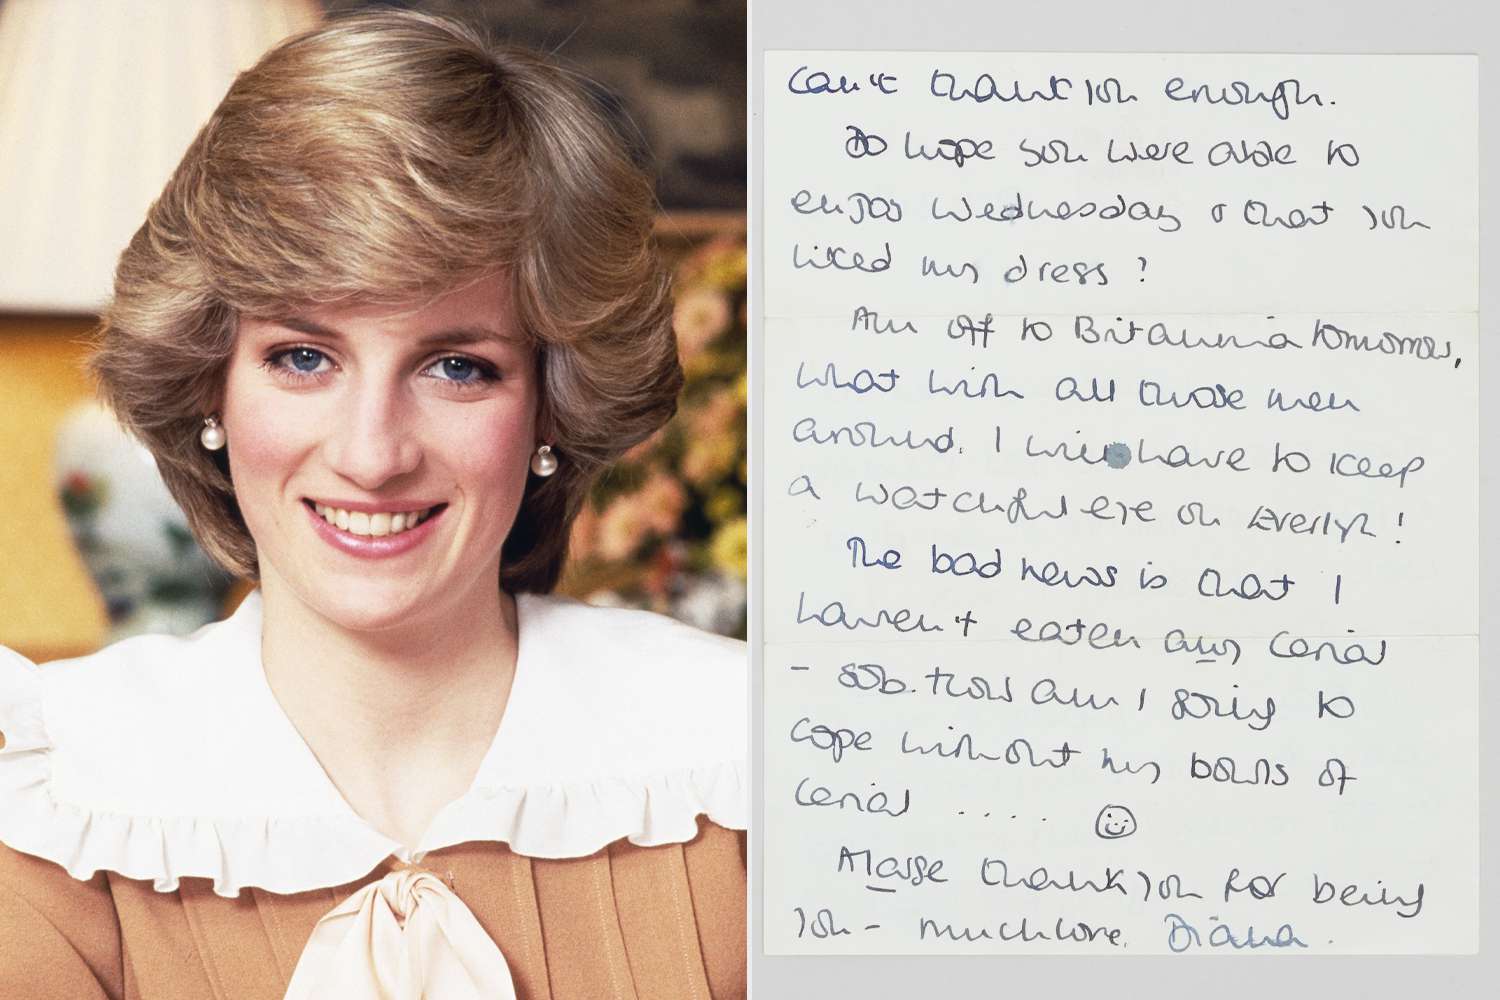 can't thank you enough.
Do hope you were able to
enjoy Wednesday & that you
liked my dress?
Am off to Britannia tomorrow,
what with all those men
around. I will have to keep
a watchful eye on Everlyn!
The bad news is that I
haven't eaten any cerial
- sob. How am I going to
cope without my bowls of
cerial ....
A large thank you for being
you - much love. Diana.